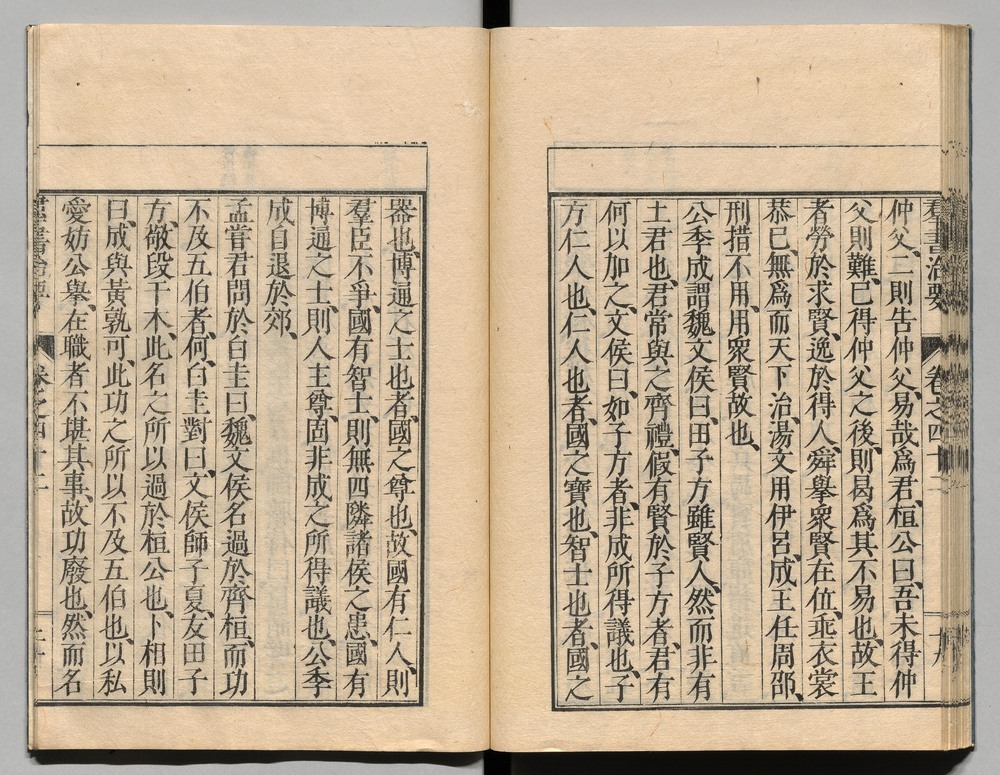 羣書治要　卷之四十二
仲父、二則告仲父、易哉爲君、桓公曰、吾未得仲
父則難、已得仲父之後、則曷爲其不易也、故王
者勞於求賢、逸於得人、舜擧衆賢在位、垂衣裳
恭已、無爲而天下治、湯文用伊呂、成王任周邵、
刑措不用、用衆賢故也、
公季成謂魏文侯曰、田子方雖賢人、然而非有
土君也、君常與之齊禮、假有賢於子方者、君有
何以加之、文侯曰、如子方者、非成所得議也、子
方仁人也、仁人也者、國之寶也、智士也者、國之
器也、博通之士也者、國之尊也、故國有仁人、則
羣臣不爭、國有智士、則無四隣諸侯之患、國有
博通之士、則人主尊固、非成之所得議也、公季
成自退於郊、
孟嘗君問於白圭曰、魏文侯名過於齊桓、而功
不及五伯者、何、白圭對曰、文侯師子夏、友田子
方、敬段干木、此名之所以過於桓公也、卜相則
曰、成與黃孰可、此功之所以不及五伯也、以私
愛妨公擧、在職者不堪其事、故功廢也、然而名
羣書治要　卷之四十二